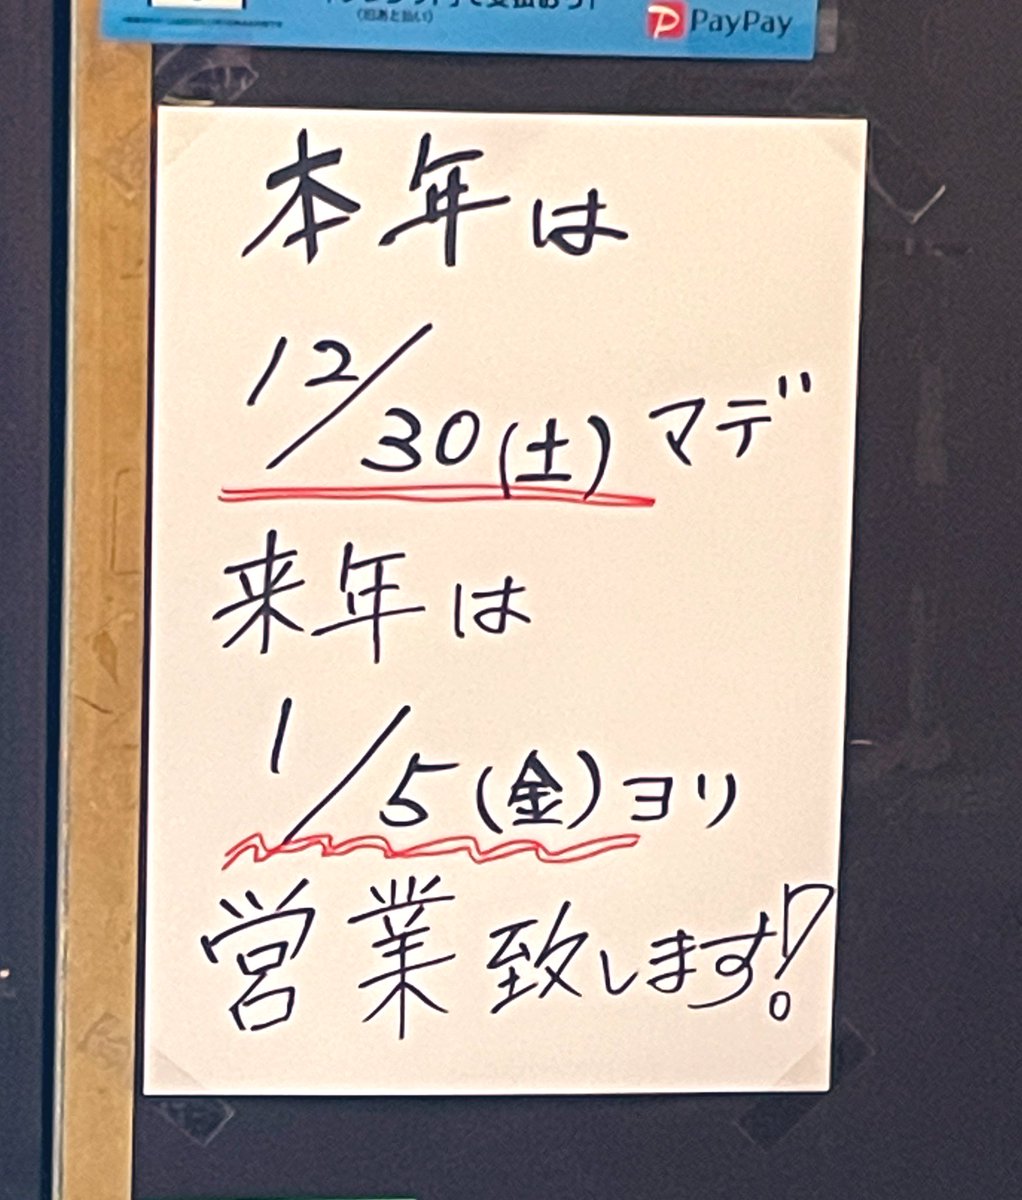 (旧あと払い)
PayPay
本年は
12/30(土)マデ
来年は
1/5(金)ヨリ
営業致します!